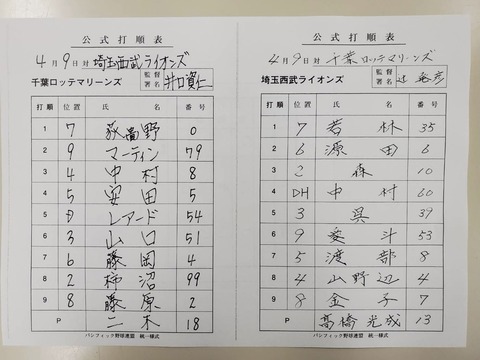 公式打順表
4月9日対 埼玉西武ライオンズ
千葉ロッテマリーンズ 監督署名 井口資仁
打順 位置 氏名 番号
1 7 荻野 0
2 9 マーティン 79
3 4 中村 8
4 5 安田 5
5 D レアード 54
6 3 山口 51
7 6 藤岡 4
8 2 柿沼 99
9 8 藤原 2
P 二木 18
パシフィック野球連盟 統一様式
公式打順表
4月9日対 千葉ロッテマリーンズ
埼玉西武ライオンズ 監督署名 辻発彦
打順 位置 氏名 番号
1 7 若林 35
2 6 源田 6
3 2 森 10
4 DH 中村 60
5 3 呉 39
6 9 愛斗 53
7 5 渡部 8
8 4 山野辺 4
9 8 金子 7
P 髙橋光成 13
パシフィック野球連盟 統一様式